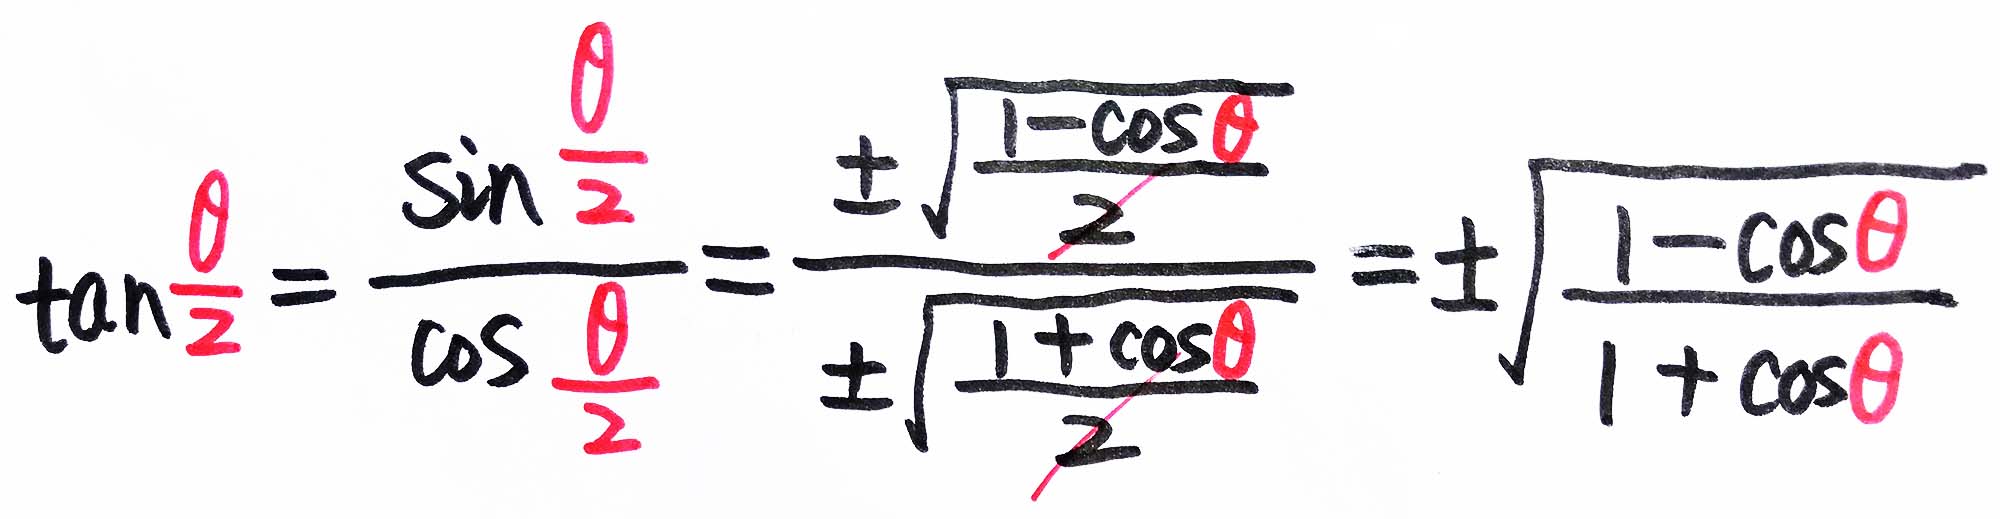 tan θ/2 = (sin θ/2)/(cos θ/2) = (±√((1-cosθ)/2))/(±√((1+cosθ)/2)) = ±√((1-cosθ)/(1+cosθ))